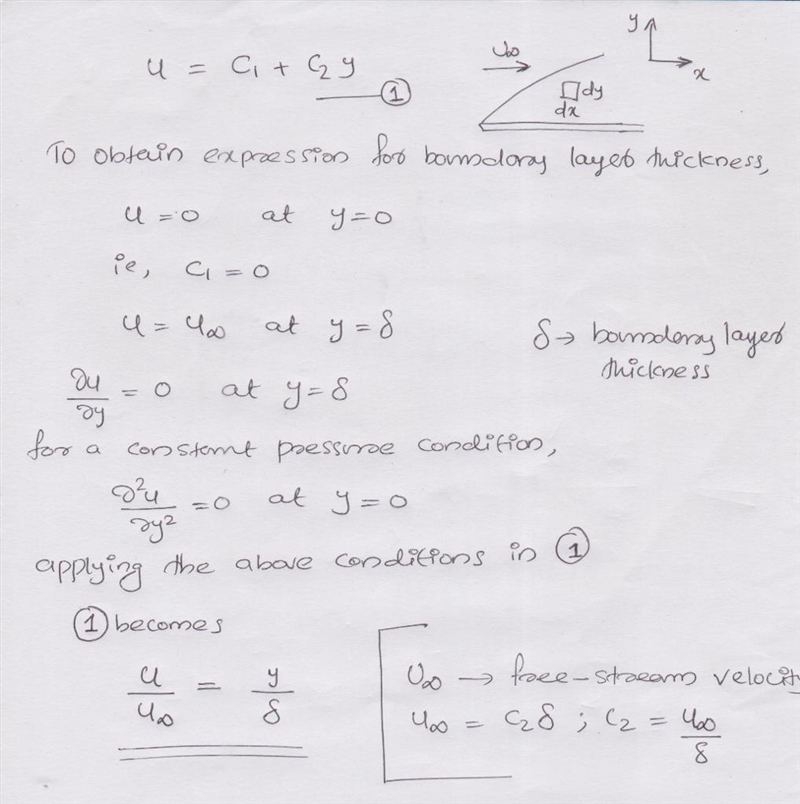 u = C₁ + C₂ y
①
U∞
y
x
dy
dx
To obtain expression for boundary layer thickness,
u = 0 at y = 0
ie, C₁ = 0
u = u∞ at y = δ
δ → boundary layer
thickness
∂u/∂y = 0 at y = δ
for a constant pressure condition,
∂²u/∂y² = 0 at y = 0
applying the above conditions in ①
① becomes
u/u∞ = y/δ
U∞ → free-stream velocity
u∞ = C₂ δ ; C₂ = u∞/δ